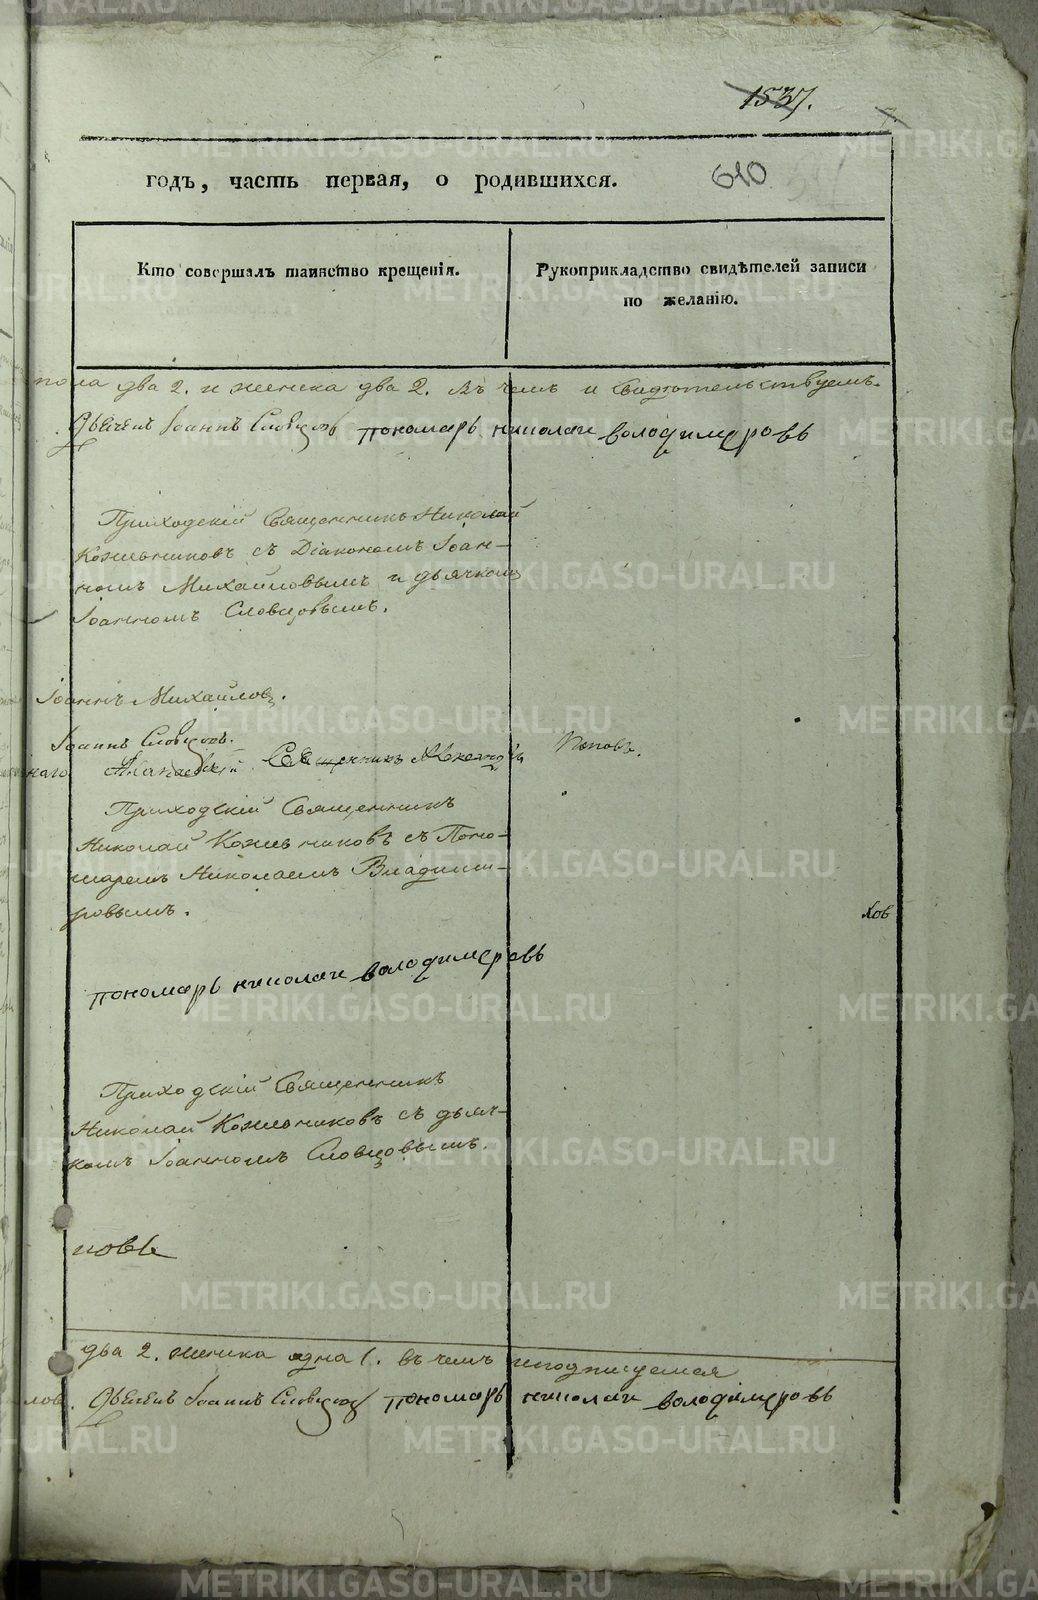 1537.
610
годъ, часть первая, о родившихся.
Кто совершалъ таинство крещенія.
Рукоприкладство свидѣтелей записи
по желанію.
пола два 2. и женска два 2. Въ чемъ и свидѣтельствуемъ.
Дьячекъ Іоаннъ Словцовъ пономарь николаи володимеровъ
Приходскій Священникъ Николай
Кожевниковъ съ Діакономъ Іоан-
номъ Михайловымъ и дьячкомъ
Іоанномъ Словцовымъ.
Іоаннъ Михайловъ.
Іоаннъ Словцовъ.
наго Священникъ Поповъ.
Приходскій Священникъ
Николай Кожевниковъ съ Поно-
маремъ Николаемъ Владими-
ровымъ.
ков
пономарь николаи володимеровъ
Приходскій Священникъ
Николай Кожевниковъ съ дьяч-
комъ Іоанномъ Словцовымъ.
новъ
два 2. женска одна 1. въ чемъ и подписуемся
лов. Дьячекъ Іоаннъ Словцовъ пономарь николаи володимеровъ
METRIKI.GASO-URAL.RU